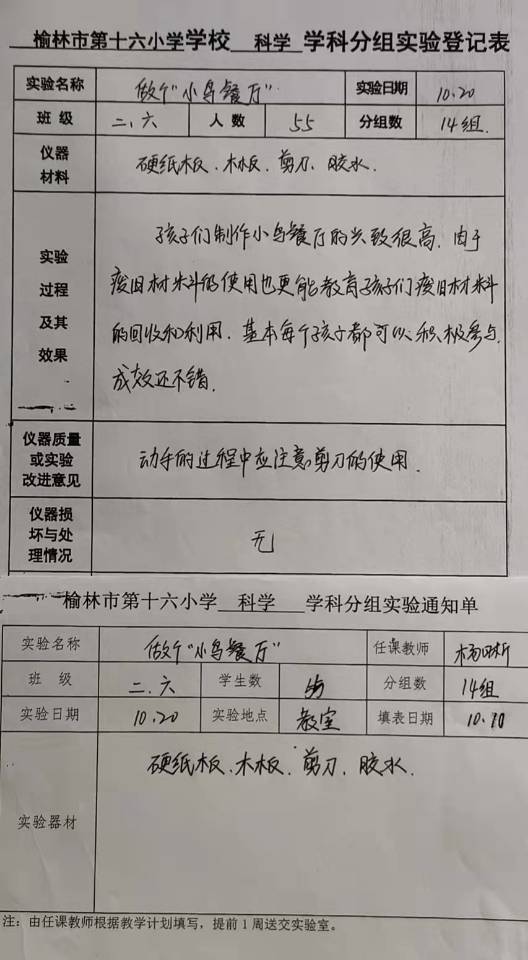 榆林市第十六小学学校 科学 学科分组实验登记表
实验名称 做个“小鸟餐厅” 实验日期 10.20
班 级 二、六 人 数 55 分组数 14组.
仪器材料 硬纸板、木板、剪刀、胶水.
实验过程及其效果
孩子们制作小鸟餐厅的兴致很高,由于
废旧材料的使用也更能教育孩子们废旧材料
的回收和利用.基本每个孩子都可以积极参与,
成效还不错.
仪器质量或实验改进意见 动手的过程中应注意剪刀的使用.
仪器损坏与处理情况 无
榆林市第十六小学 科学 学科分组实验通知单
实验名称 做个“小鸟餐厅” 任课教师
班 级 二、六 学生数 55 分组数 14组
实验日期 10.20 实验地点 教室 填表日期 10.10
实验器材 硬纸板、木板、剪刀、胶水.
注：由任课教师根据教学计划填写，提前1周送交实验室。